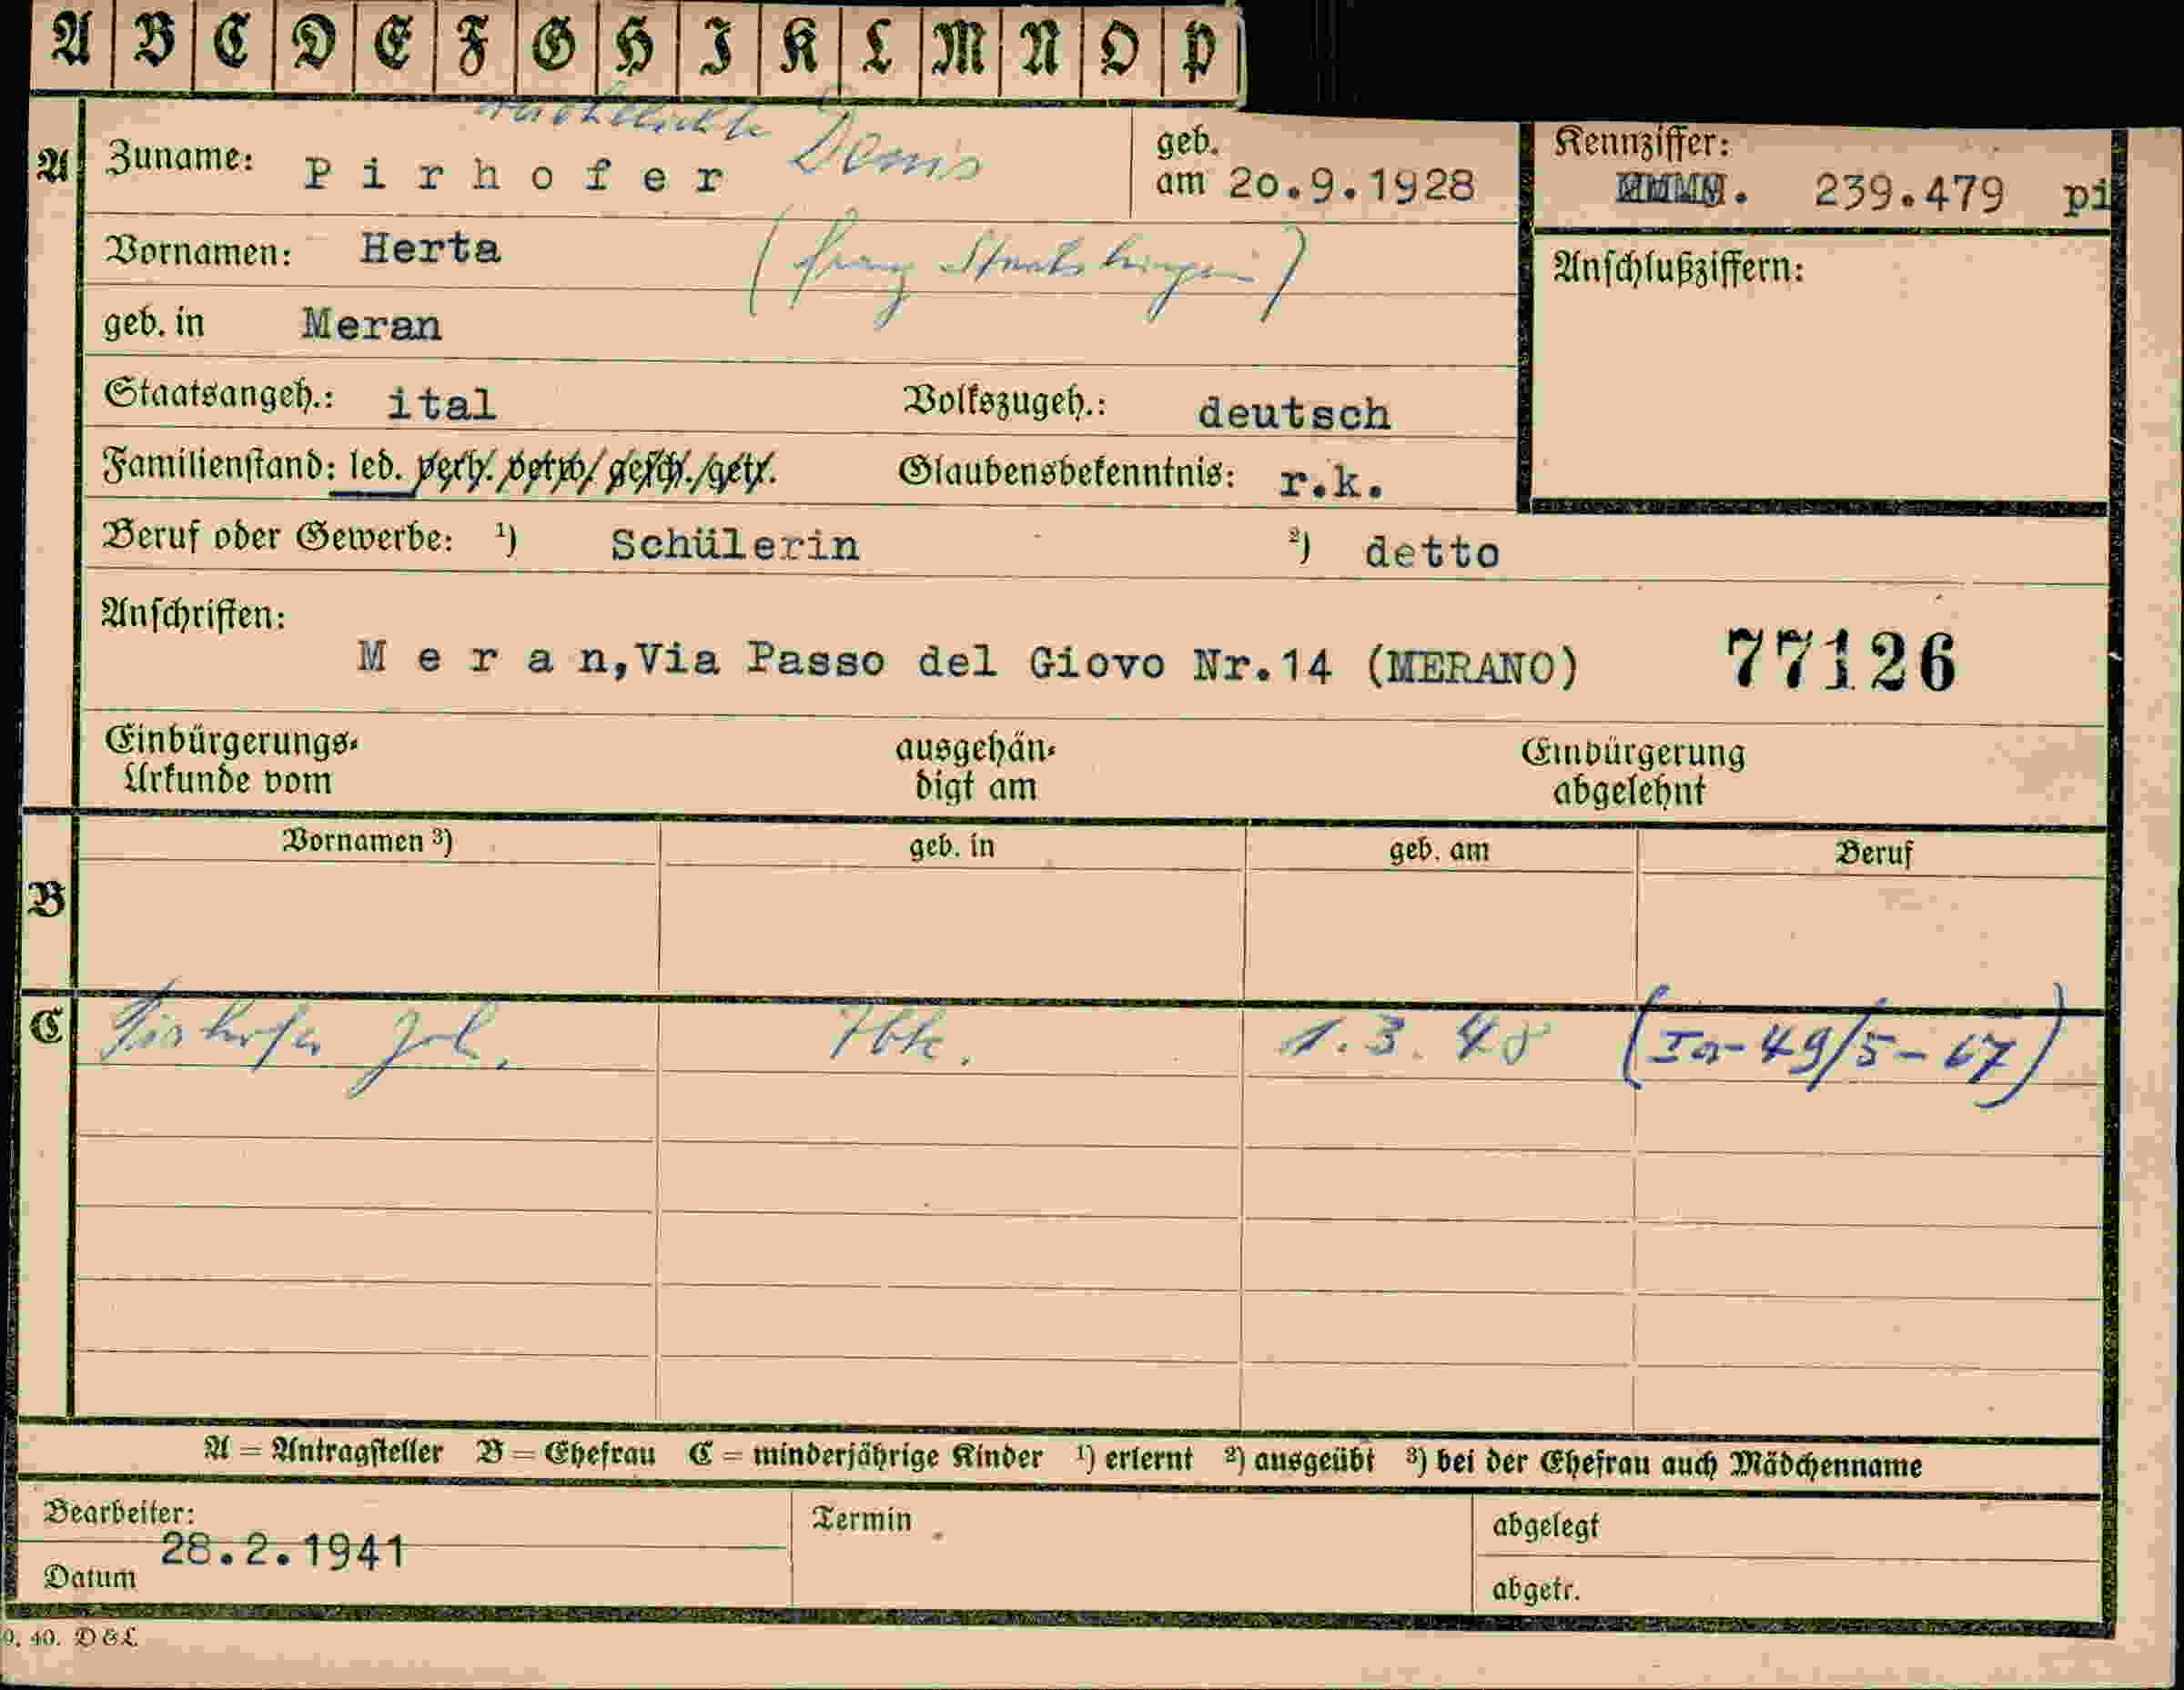 A B C D E F G H I K L M N O P
Denis
A Zuname: Pirhofer geb. am 20.9.1928 Kennziffer: 239.479 pi
Vornamen: Herta (franz Staatsbürgerin) Anschlußziffern:
geb. in Meran
Staatsangeh.: ital Volkszugeh.: deutsch
Familienstand: led. verh. verw. gesch. getr. Glaubensbekenntnis: r.k.
Beruf oder Gewerbe: ¹) Schülerin ²) detto
Anschriften:
Meran, Via Passo del Giovo Nr.14 (MERANO) 77126
Einbürgerungs- ausgehän- Einbürgerung
Urkunde vom digt am abgelehnt
Vornamen ³) geb. in geb. am Beruf
B
C Pirhofer Joh. Ibk. 1.3.48 (Ia-49/5-67)
A = Antragsteller B = Ehefrau C = minderjährige Kinder ¹) erlernt ²) ausgeübt ³) bei der Ehefrau auch Mädchenname
Bearbeiter: Termin abgelegt
28.2.1941
Datum abgetr.
9. 40. D&L